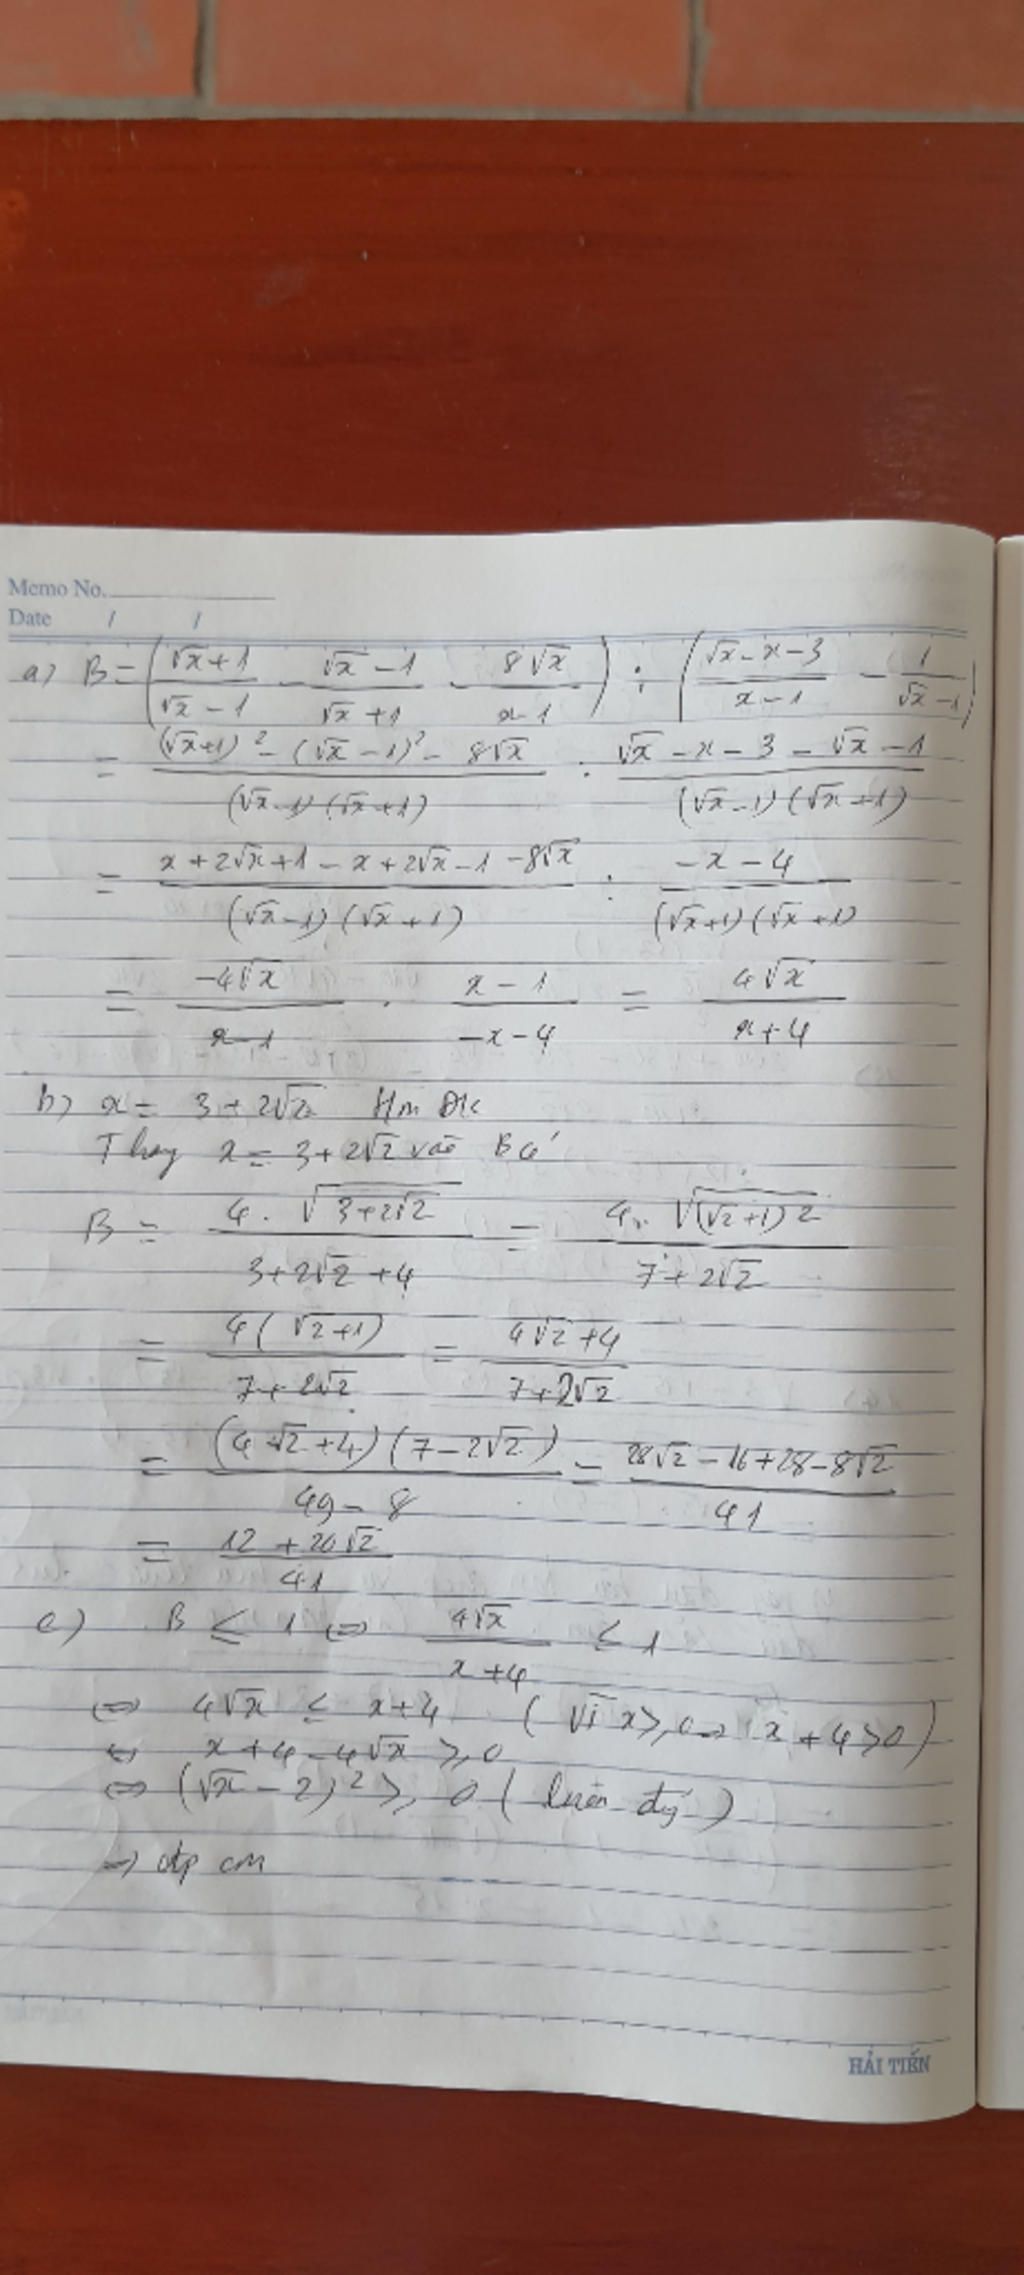 Memo No.
Date / /
a) B = ( (√x+1)/(√x-1) - (√x-1)/(√x+1) - 8√x/(x-1) ) : ( (√x-x-3)/(x-1) - 1/(√x-1) )
= ((√x+1)² - (√x-1)² - 8√x)/((√x-1)(√x+1)) : (√x-x-3-√x-1)/((√x-1)(√x+1))
= (x+2√x+1-x+2√x-1-8√x)/((√x-1)(√x+1)) : (-x-4)/((√x+1)(√x+1))
= (-4√x)/(x-1) . (x-1)/(-x-4) = 4√x/(x+4)
b) x = 3+2√2 tm ĐK
Thay x = 3+2√2 vào B có
B = (4.√(3+2√2))/(3+2√2+4) = (4.√((√2+1)2))/(7+2√2)
= (4(√2+1))/(7+2√2) = (4√2+4)/(7+2√2)
= ((4√2+4)(7-2√2))/(49-8) = (28√2-16+28-8√2)/41
= (12+20√2)/41
c) B ≤ 1 ⇔ 4√x/(x+4) ≤ 1
⇔ 4√x ≤ x+4 (Vì x ≥ 0 ⇒ x+4 > 0)
⇔ x+4-4√x ≥ 0
⇔ (√x-2)² ≥ 0 (luôn đg)
⇒ đpcm
HẢI TIẾN